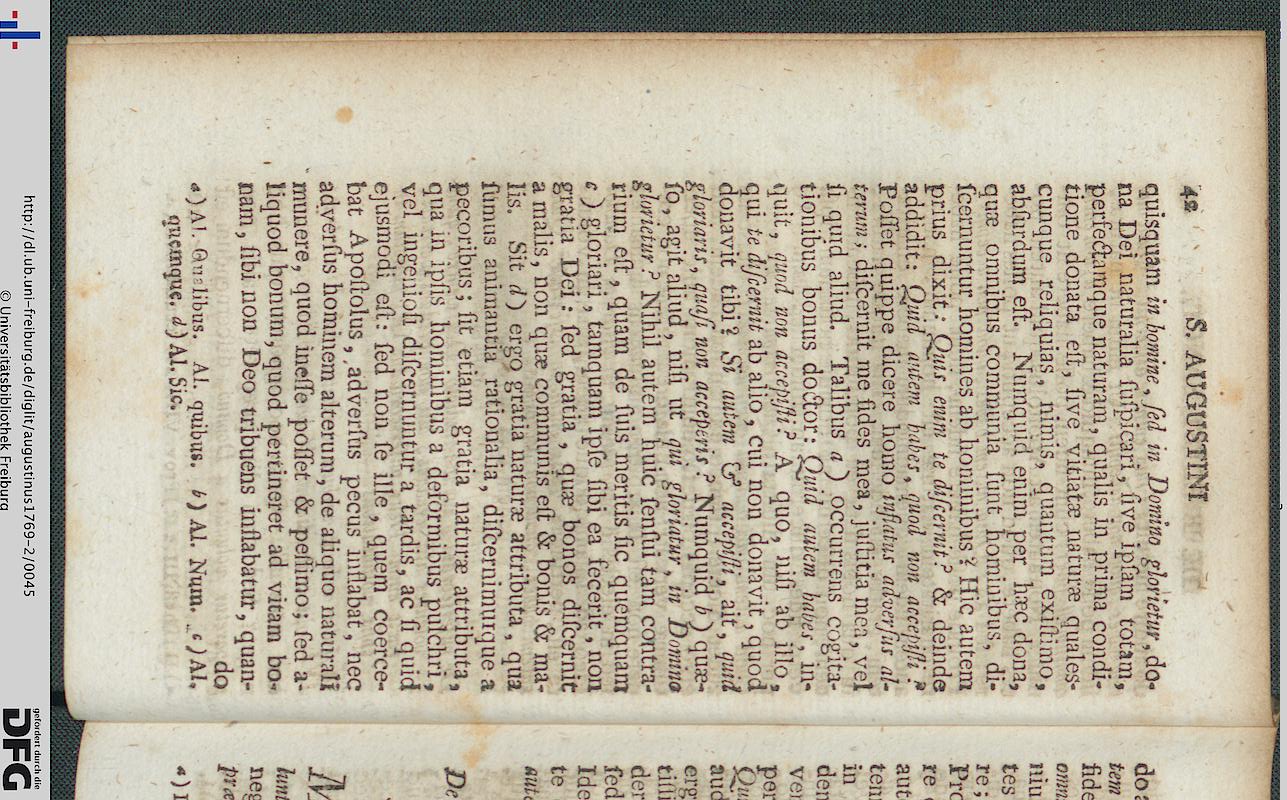 42 S. AUGUSTINI
quisquam in homine, ſed in Domino glorietur, do-
na Dei naturalia ſuſpicari, ſive ipſam totam,
perfectamque naturam, qualis in prima condi-
tione donata eſt, ſive vitiatæ naturæ quales-
cunque reliquias, nimis, quantum exiſtimo,
abſurdum eſt. Nunquid enim per hæc dona,
quæ omnibus communia ſunt hominibus, di-
ſcernuntur homines ab hominibus? Hic autem
prius dixit: Quis enim te diſcernit? & deinde
addidit: Quid autem habes, quod non accepiſti?
Poſſet quippe dicere homo inflatus adverſus al-
terum; diſcernit me fides mea, juſtitia mea, vel
ſi quid aliud. Talibus a) occurrens cogita-
tionibus bonus doctor: Quid autem habes, in-
quit, quod non accepiſti? A quo, niſi ab illo,
qui te diſcernit ab alio, cui non donavit, quod
donavit tibi? Si autem & accepiſti, ait, quid
gloriaris, quaſi non acceperis? Numquid b) quæ-
ſo, agit aliud, niſi ut qui gloriatur, in Domino
glorietur? Nihil autem huic ſenſui tam contra-
rium eſt, quam de ſuis meritis ſic quemquam
c) gloriari, tamquam ipſe ſibi ea fecerit, non
gratia Dei: ſed gratia, quæ bonos diſcernit
a malis, non quæ communis eſt & bonis & ma-
lis. Sit d) ergo gratia naturæ attributa, qua
ſumus animantia rationalia, diſcernimurque a
pecoribus; ſit etiam gratia naturæ attributa,
qua in ipſis hominibus a deformibus pulchri,
vel ingenioſi diſcernuntur a tardis, ac ſi quid
ejusmodi eſt: ſed non ſe ille, quem coerce-
bat Apoſtolus, adverſus pecus inflabat, nec
adverſus hominem alterum, de aliquo naturali
munere, quod ineſſe poſſet & peſſimo; ſed a-
liquod bonum, quod pertineret ad vitam bo-
nam, ſibi non Deo tribuens inflabatur, quan-
do
a) Al. Qualibus. Al. quibus. b) Al. Num. c) Al.
quemque. d) Al. Sic.
http://dl.ub.uni-freiburg.de/diglit/augustinus1769-2/0045
© Universitätsbibliothek Freiburg
gefördert durch die
DFG